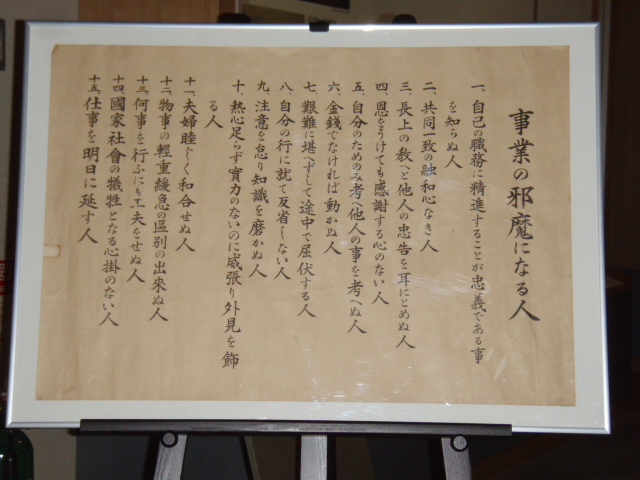 事業の邪魔になる人
一、自己の職務に精進することが忠義である事
を知らぬ人
二、共同一致の融和心なき人
三、長上の教へと他人の忠告を耳にとめぬ人
四、恩をうけても感謝する心のない人
五、自分のためのみ考へ他人の事を考へぬ人
六、金錢でなければ動かぬ人
七、艱難に堪へずして途中で屈伏する人
八、自分の行に就て反省しない人
九、注意を怠り知識を磨かぬ人
十、熱心足らず實力のないのに威張り外見を飾
る人
十一、夫婦睦じく和合せぬ人
十二、物事の輕重緩急の區別の出來ぬ人
十三、何事を行ふにも工夫をせぬ人
十四、國家社會の犠牲となる心掛のない人
十五、仕事を明日に延す人